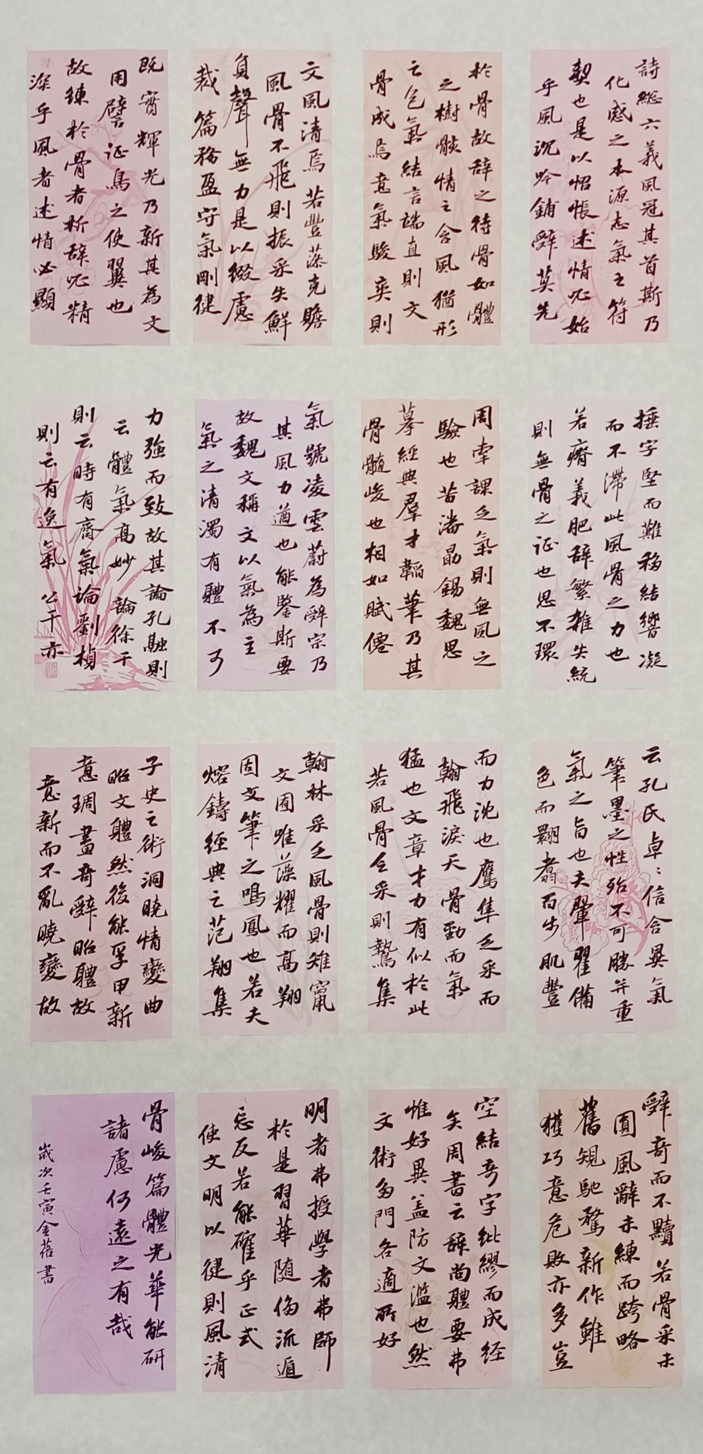 詩總六義風冠其首斯乃
化感之本源志氣之符
契也是以怊悵述情必始
乎風沉吟鋪辭莫先
於骨故辭之待骨如體
之樹骸情之含風猶形
之包氣結言端直則文
骨成焉意氣駿爽則
文風清焉若豐藻克贍
風骨不飛則振采失鮮
負聲無力是以綴慮
裁篇務盈守氣剛健
既實輝光乃新其為文
用譬証鳥之使翼也
故練於骨者析辭必精
深乎風者述情必顯
捶字堅而難移結響凝
而不滯此風骨之力也
若瘠義肥辭繁雜失統
則無骨之证也思不環
周牽課乏氣則無風之
驗也昔潘勗錫魏思
摹經典羣才韜筆乃其
骨髓峻也相如賦僊
氣號凌雲蔚為辭宗乃
其風力遒也能鑒斯要
故魏文稱文以氣為主
氣之清濁有體不可
力強而致故其論孔融則
云體氣高妙論徐干
則云時有齊氣論劉楨
則云有逸氣公干亦
云孔氏卓〻信含異氣
筆墨之性殆不可勝并重
氣之旨也夫翬翟備
色而翾翥百步肌豐
而力沈也鷹隼乏采而
翰飛淚天骨勁而氣
猛也文章才力有似於此
若風骨乏采則鷙集
翰林采乏風骨則雉竄
文囿唯藻耀而高翔
固文筆之鳴鳳也若夫
熔鑄經典之范翔集
子史之術洞曉情變曲
昭文體然後能孚甲新
意琱畫奇辭昭體故
意新而不亂曉變故
辭奇而不黷若骨采未
圓風辭未練而跨略
舊規馳騖新作雖
獲巧意危敗亦多豈
空結奇字紕繆而成経
矣周書云辞尚體要弗
惟好異蓋防文濫也然
文術多門各適所好
明者弗授學者弗師
於是習華随侈流遁
忘反若能確乎正式
使文明以健則風清
骨峻篇體光華能研
諸慮何遠之有哉
歲次壬寅金蓓書